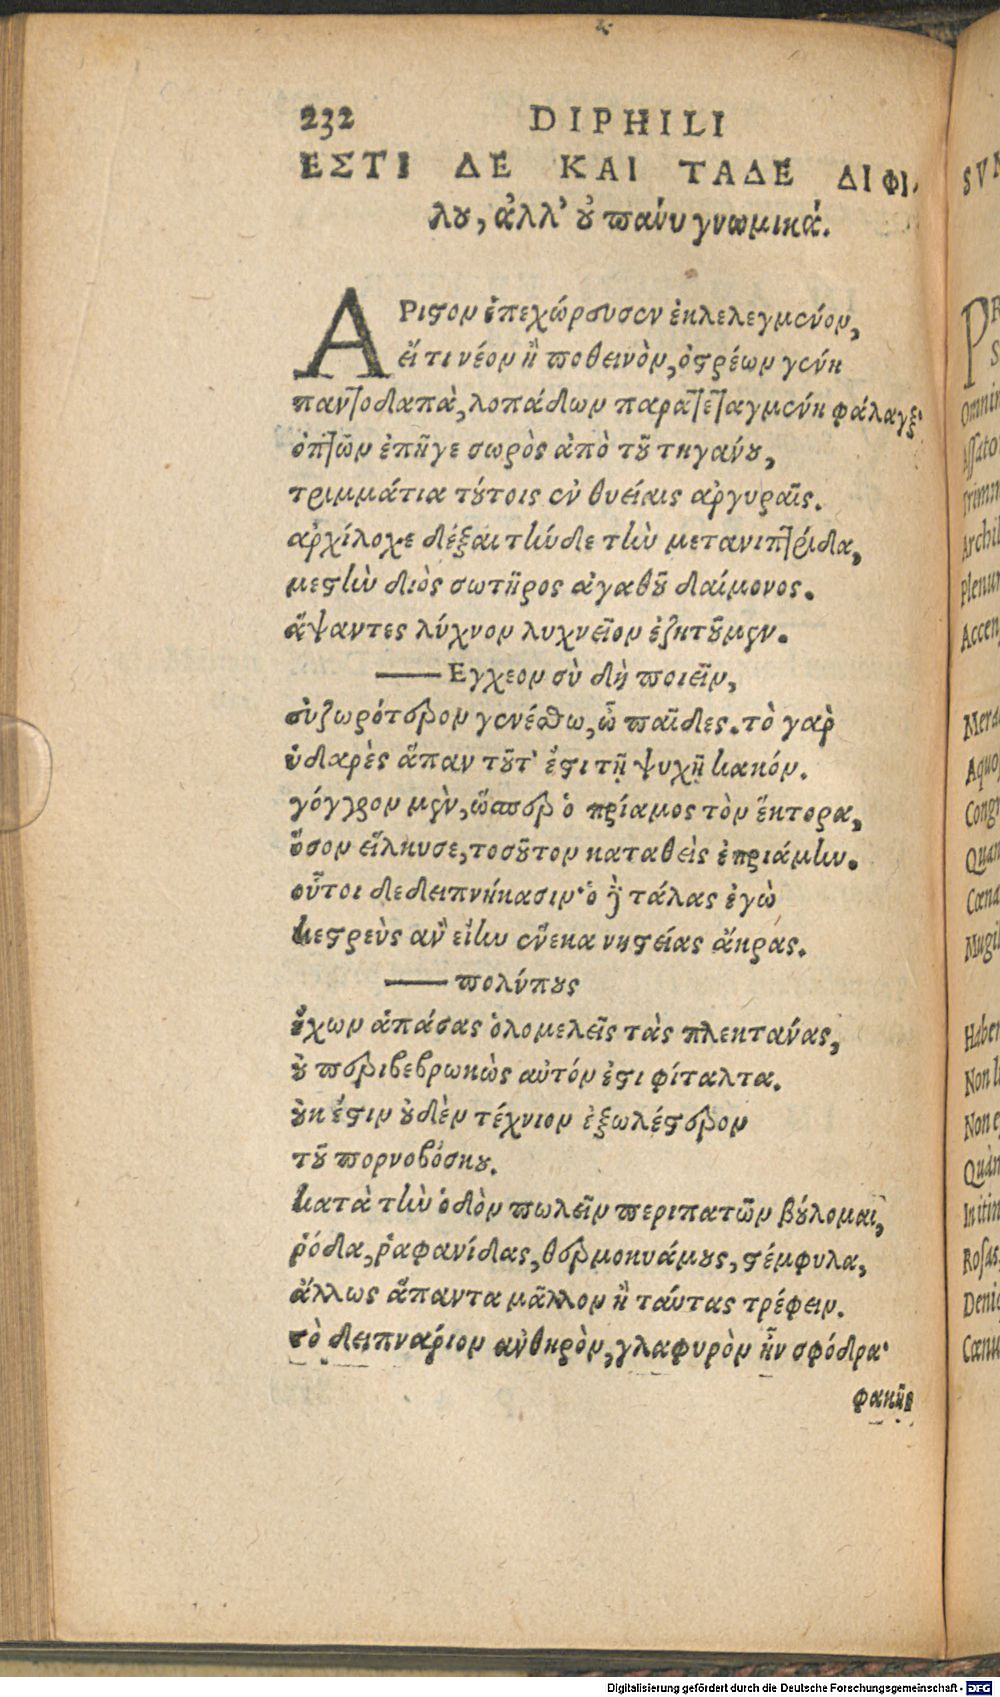 232 DIPHILI
ΕΣΤΙ ΔΕ ΚΑΙ ΤΑΔΕ ΔΙΦΙ-
λου, ἀλλ' οὐ πάνυ γνωμικά.
ΑΡιστον ἐπεχώρουσεν ἐκλελεγμένον,
εἴ τι νέον ἢ ποθεινὸν, ὀστρέων γένη
παντοδαπὰ, λοπάδων παρατεταγμένη φάλαγξ·
ὀπτῶν ἐπῆγε σωρὸς ἀπὸ τοῦ τηγάνου,
τριμμάτια τούτοις ἐν θυείαις ἀργυραῖς.
ἀρχίλοχε δέξαι τὴν δε τὴν μετανιπτρίδα,
μεστὴν διὸς σωτῆρος ἀγαθοῦ δαίμονος.
ἅψαντες λύχνον λυχνεῖον ἐζητοῦμεν.
Εγχεον σὺ δὴ ποιεῖν,
εὐζωρότερον γενέσθω, ὦ παῖδες. τὸ γὰρ
ὑδαρὲς ἅπαν τοῦτ' ἔστι τῇ ψυχῇ κακόν.
γόγγρον μὲν, ὥσπερ ὁ πρίαμος τὸν ἕκτορα,
ὅσον εἵλκυσε, τοσοῦτον καταθεὶς ἐπριάμην.
οὗτοι δεδειπνήκασιν· ὁ δὲ τάλας ἐγὼ
κεστρεὺς ἂν εἴην ἕνεκα νηστείας ἄκρας.
πολύπους
ἔχων ἁπάσας ὁλομελεῖς τὰς πλεκτάνας,
οὐ περιβεβρωκὼς αὐτόν ἐστι φίταλτα.
οὐκ ἔστιν οὐδὲν τέχνιον ἐξωλέστερον
τοῦ πορνοβόσκου.
κατὰ τὴν ὁδὸν πωλεῖν περιπατῶν βούλομαι,
ῥόδα, ῥαφανίδας, θερμοκυάμους, στέμφυλα,
ἄλλως ἅπαντα μᾶλλον ἢ ταύτας τρέφειν.
τὸ δειπνάριον ἀνθηρὸν, γλαφυρὸν ἦν σφόδρα·
φακῆς
Omnin
Archil
Plenum
Accen
Aquo
Congr
Quan
Cœna
Mugil
Haber
Non l
Non e
Quàn
In itin
Rosas
Deniq
Cœnu
Digitalisierung gefördert durch die Deutsche Forschungsgemeinschaft - DFG